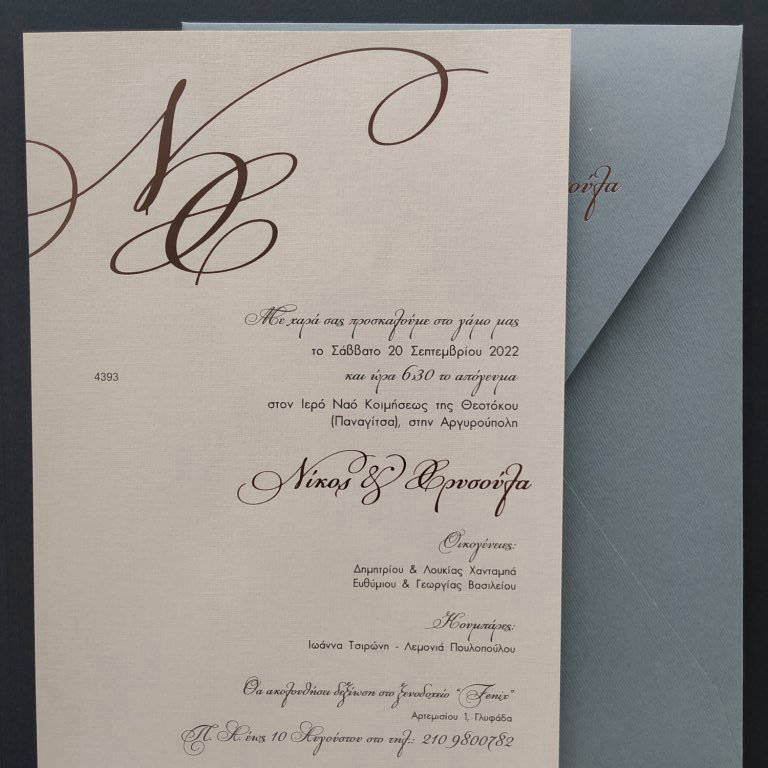 Ν Χ
ούλα
Με χαρά σας προσκαλούμε στο γάμο μας
το Σάββατο 20 Σεπτεμβρίου 2022
4393
και ώρα 6.30 το απόγευμα
στον Ιερό Ναό Κοιμήσεως της Θεοτόκου
(Παναγίτσα), στην Αργυρούπολη
Νίκος & Χρυσούλα
Οικογένειες:
Δημητρίου & Λουκίας Χανταμπά
Ευθύμιου & Γεωργίας Βασιλείου
Κουμπάρες:
Ιωάννα Τσιρώνη - Λεμονιά Πουλοπούλου
Θα ακολουθήσει δεξίωση στο ξενοδοχείο "Fenix"
Αρτεμισίου 1, Γλυφάδα
Π. Α. έως 10 Αυγούστου στο τηλ.: 210 9800782